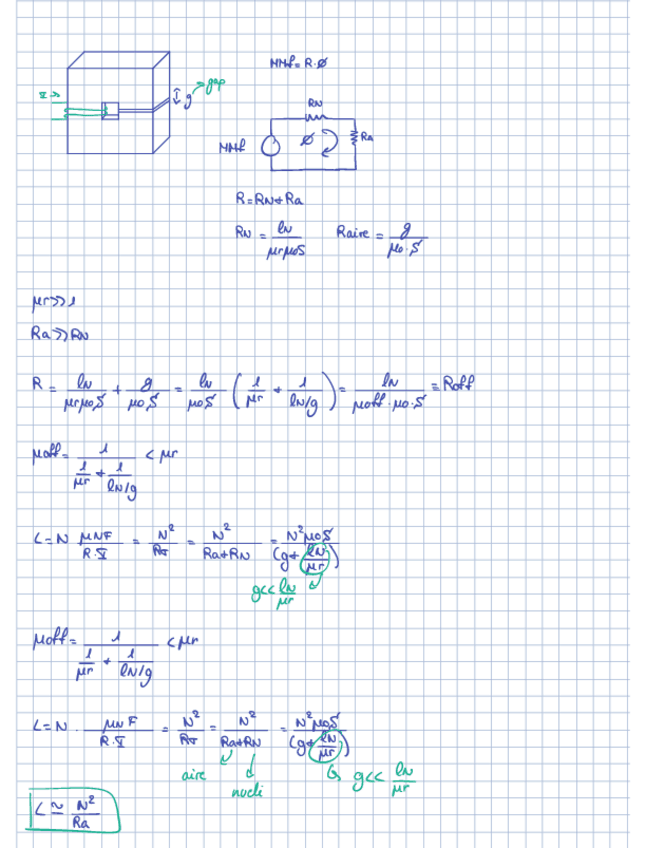 MMf = R·Ø
I >>
g → gap
RN
MMf Ø Ra
R = RN + Ra
RN = lN / μrμoS Raire = g / μo·S
μr >> 1
Ra >> RN
R = lN / μrμoS + g / μoS = lN / μoS ( 1/μr + 1/(lN/g) ) = lN / μoff·μo·S = Roff
μoff = 1 / ( 1/μr + 1/(lN/g) ) < μr
L = N μNF / R·I = N² / RT = N² / Ra+RN = N²μoS / (g + lN/μr)
g << lN/μr
μoff = 1 / ( 1/μr + 1/(lN/g) ) < μr
L = N · μNF / R·I = N² / RT = N² / Ra+RN = N²μoS / (g + lN/μr)
aire nucli g << lN/μr
L ≃ N² / Ra